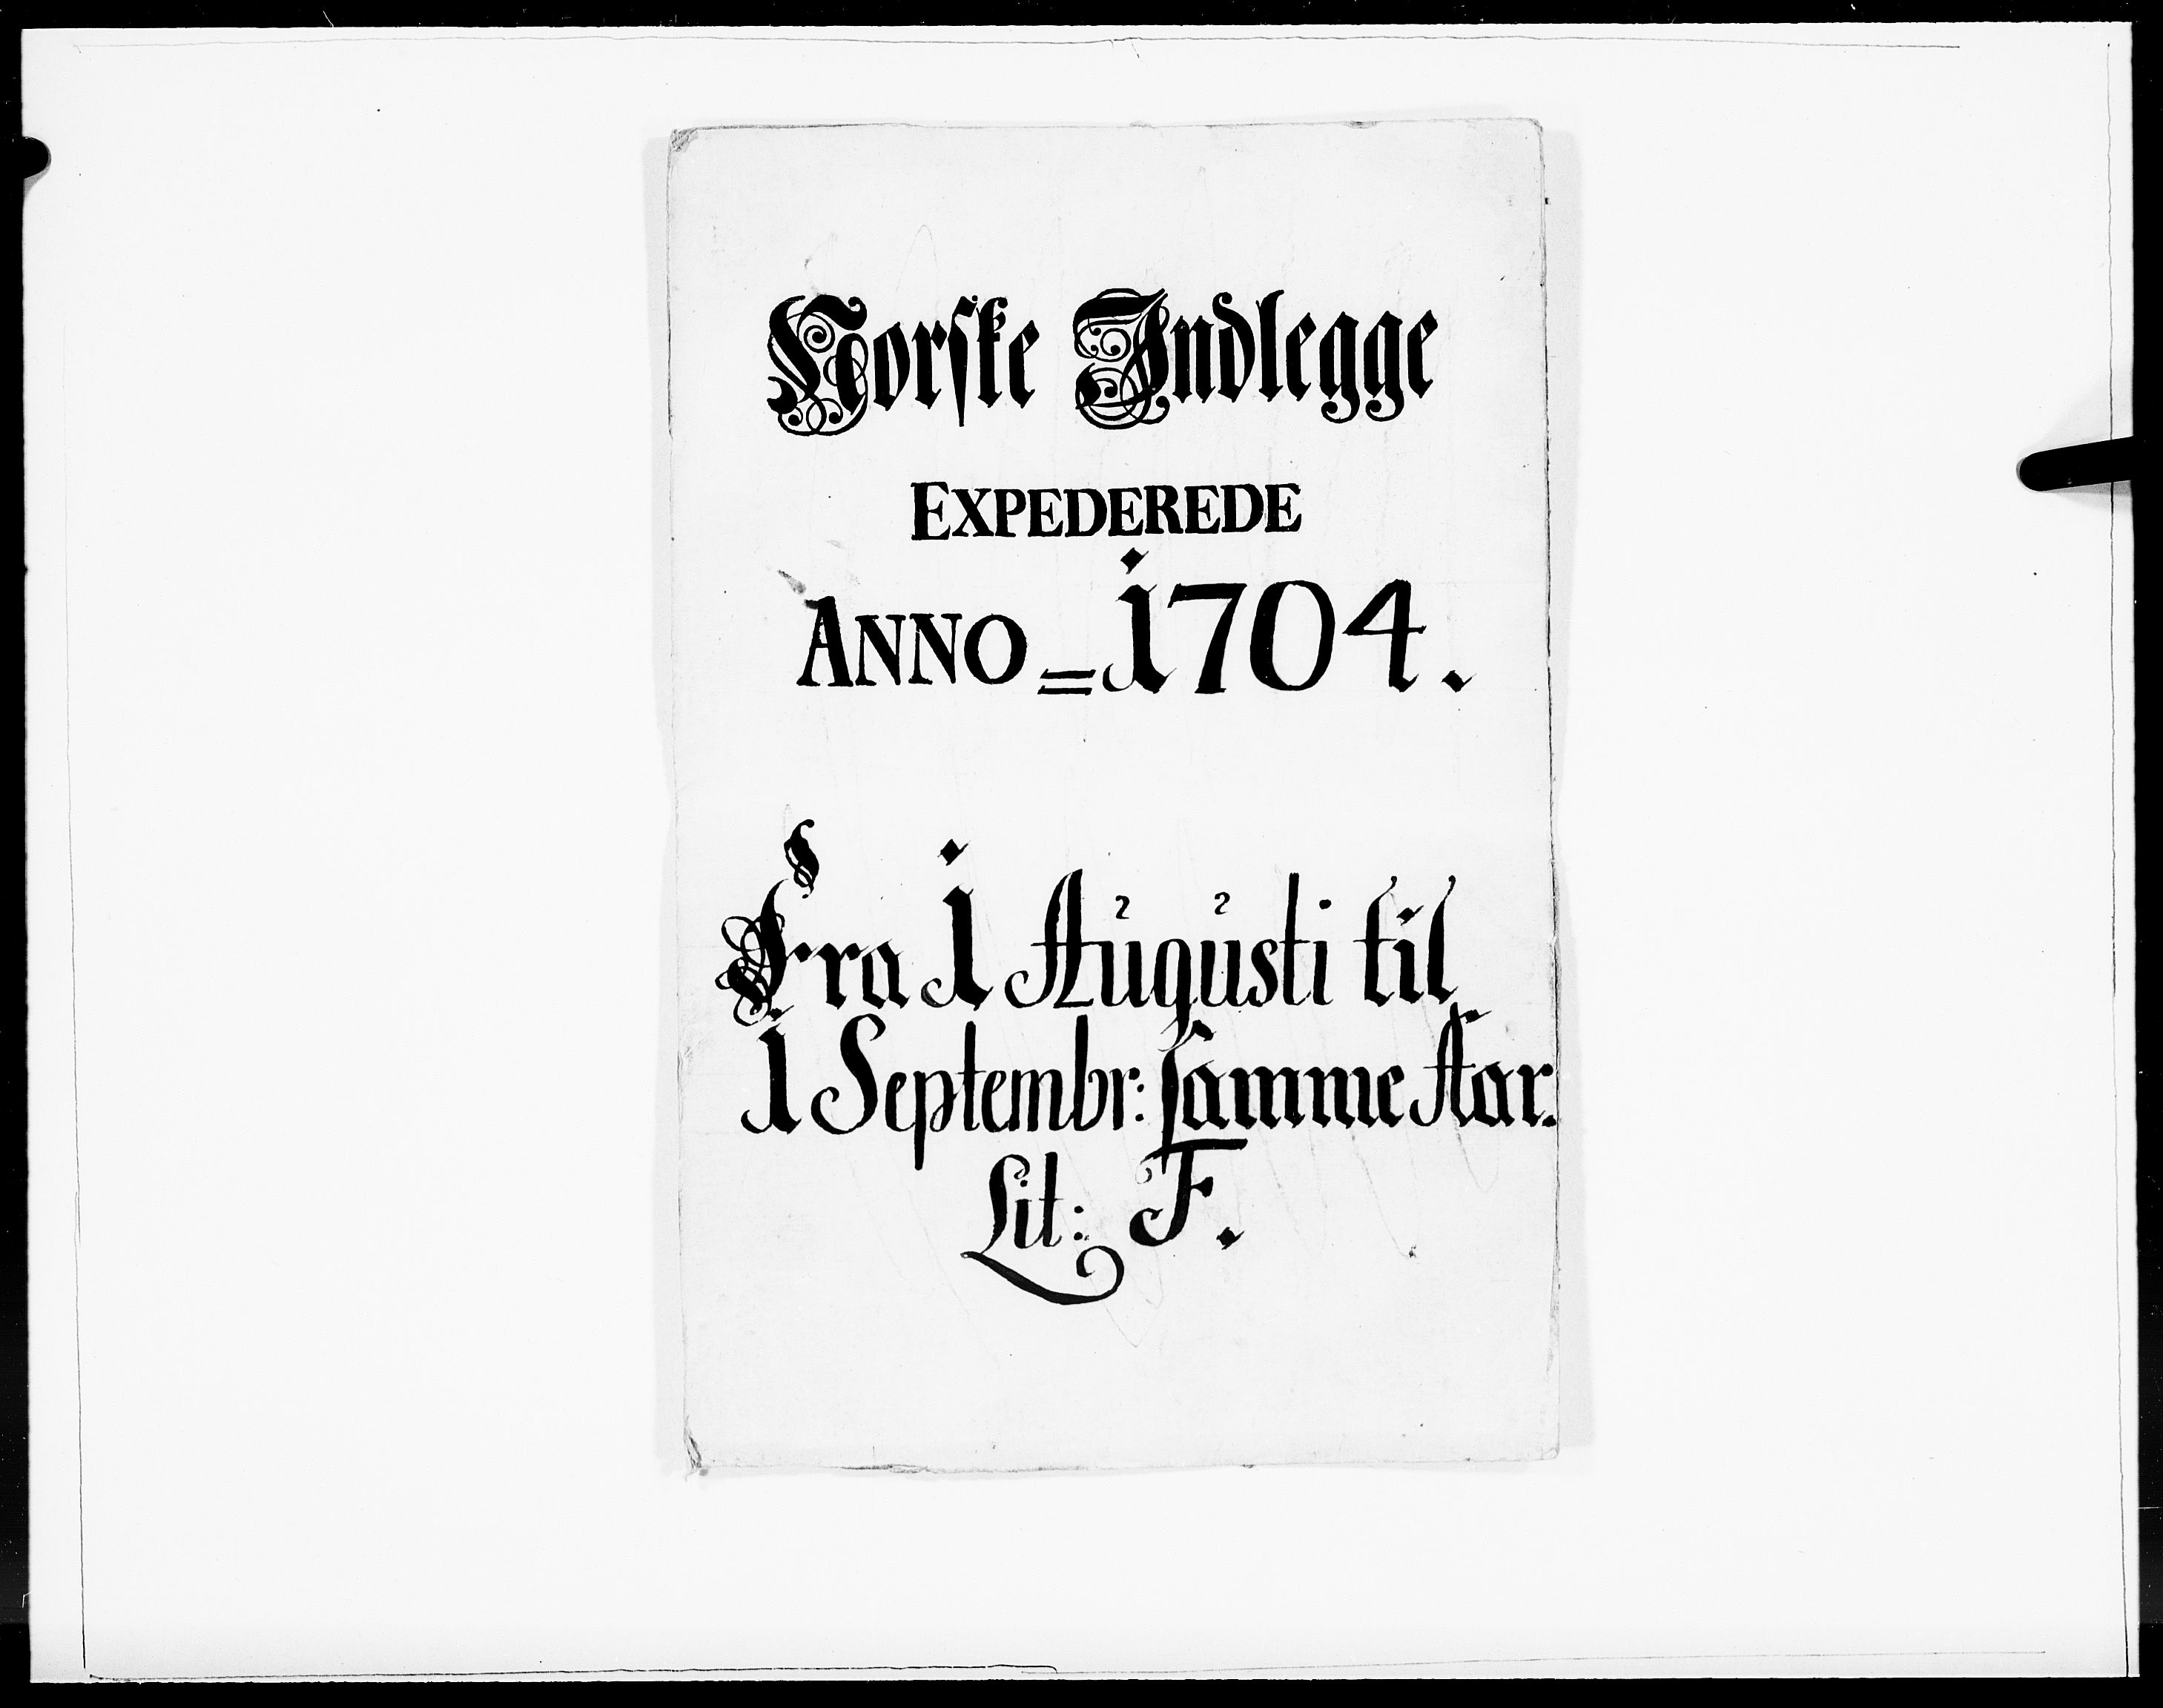 Norske Indlegge
EXPEDEREDE
ANNO = 1704.
Fra 1 Augusti til
1 Septembr: samme Aar.
Lit: F.